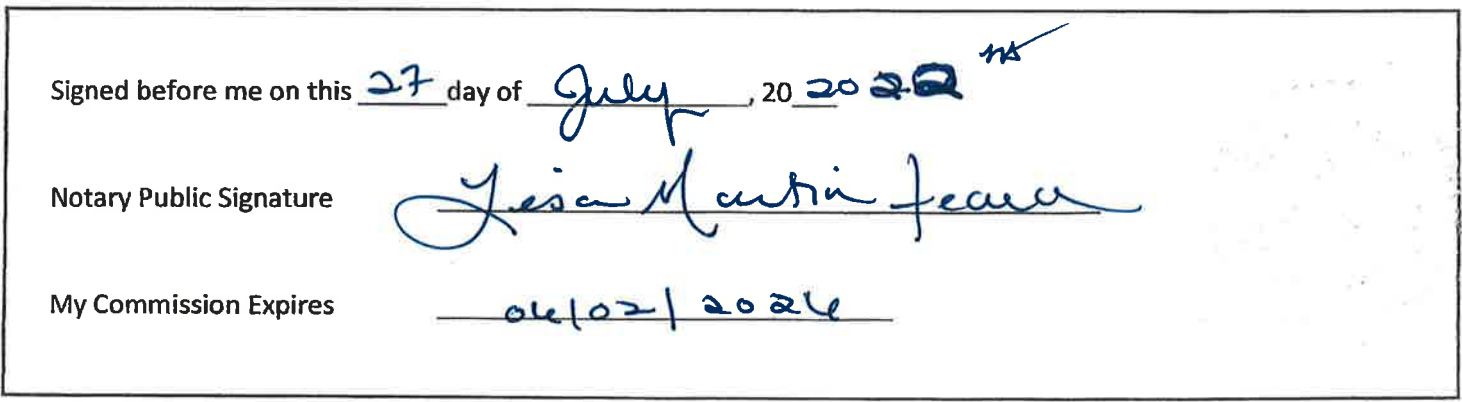 Signed before me on this 27 day of July, 20 20 22
Notary Public Signature Lisa Martin
My Commission Expires 04/02/2024